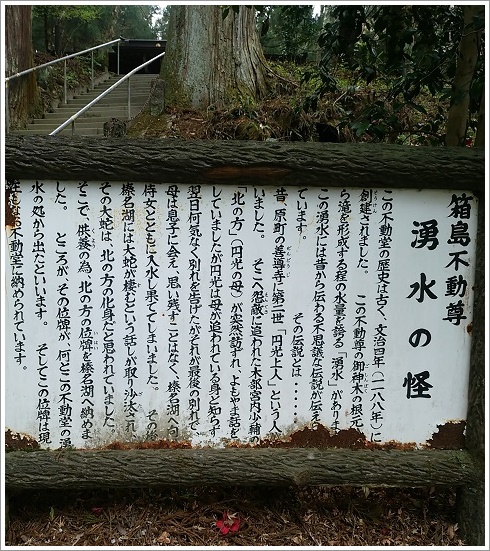 箱島不動尊
湧水の怪
この不動堂の歴史は古く、文治四年(一一八八年)に
創建されました。 この不動尊の御神木の根元
ら滝を形成する程の水量を誇る「湧水」があります
この湧水には昔から伝わる不思議な伝説が伝えら
ています。 その伝説とは・・・・
昔、原町の善導寺に第二世「円光上人」という人
いました。 そこへ怨敵に追われた木部宮内少輔の
「北の方」(円光の母)が突然訪ずれ、よもやま話を
していましたが円光は母が追われている身と知らず
翌日何気なく別れを告げたがそれが最後の別れで、
母は息子に会え、思い残すことはなく、榛名湖へ向
侍女とともに入水し果ててしまいました。 その後
榛名湖には大蛇が棲むという話しが取り沙汰され
その大蛇は、北の方の化身だと思われていました。
そこで、供養の為、北の方の位牌を榛名湖へ納めま
した。 ところが、その位牌が、何とこの不動堂の湧
水の処から出たといいます。 そしてこの位牌は現
もなお不動堂に納められています。